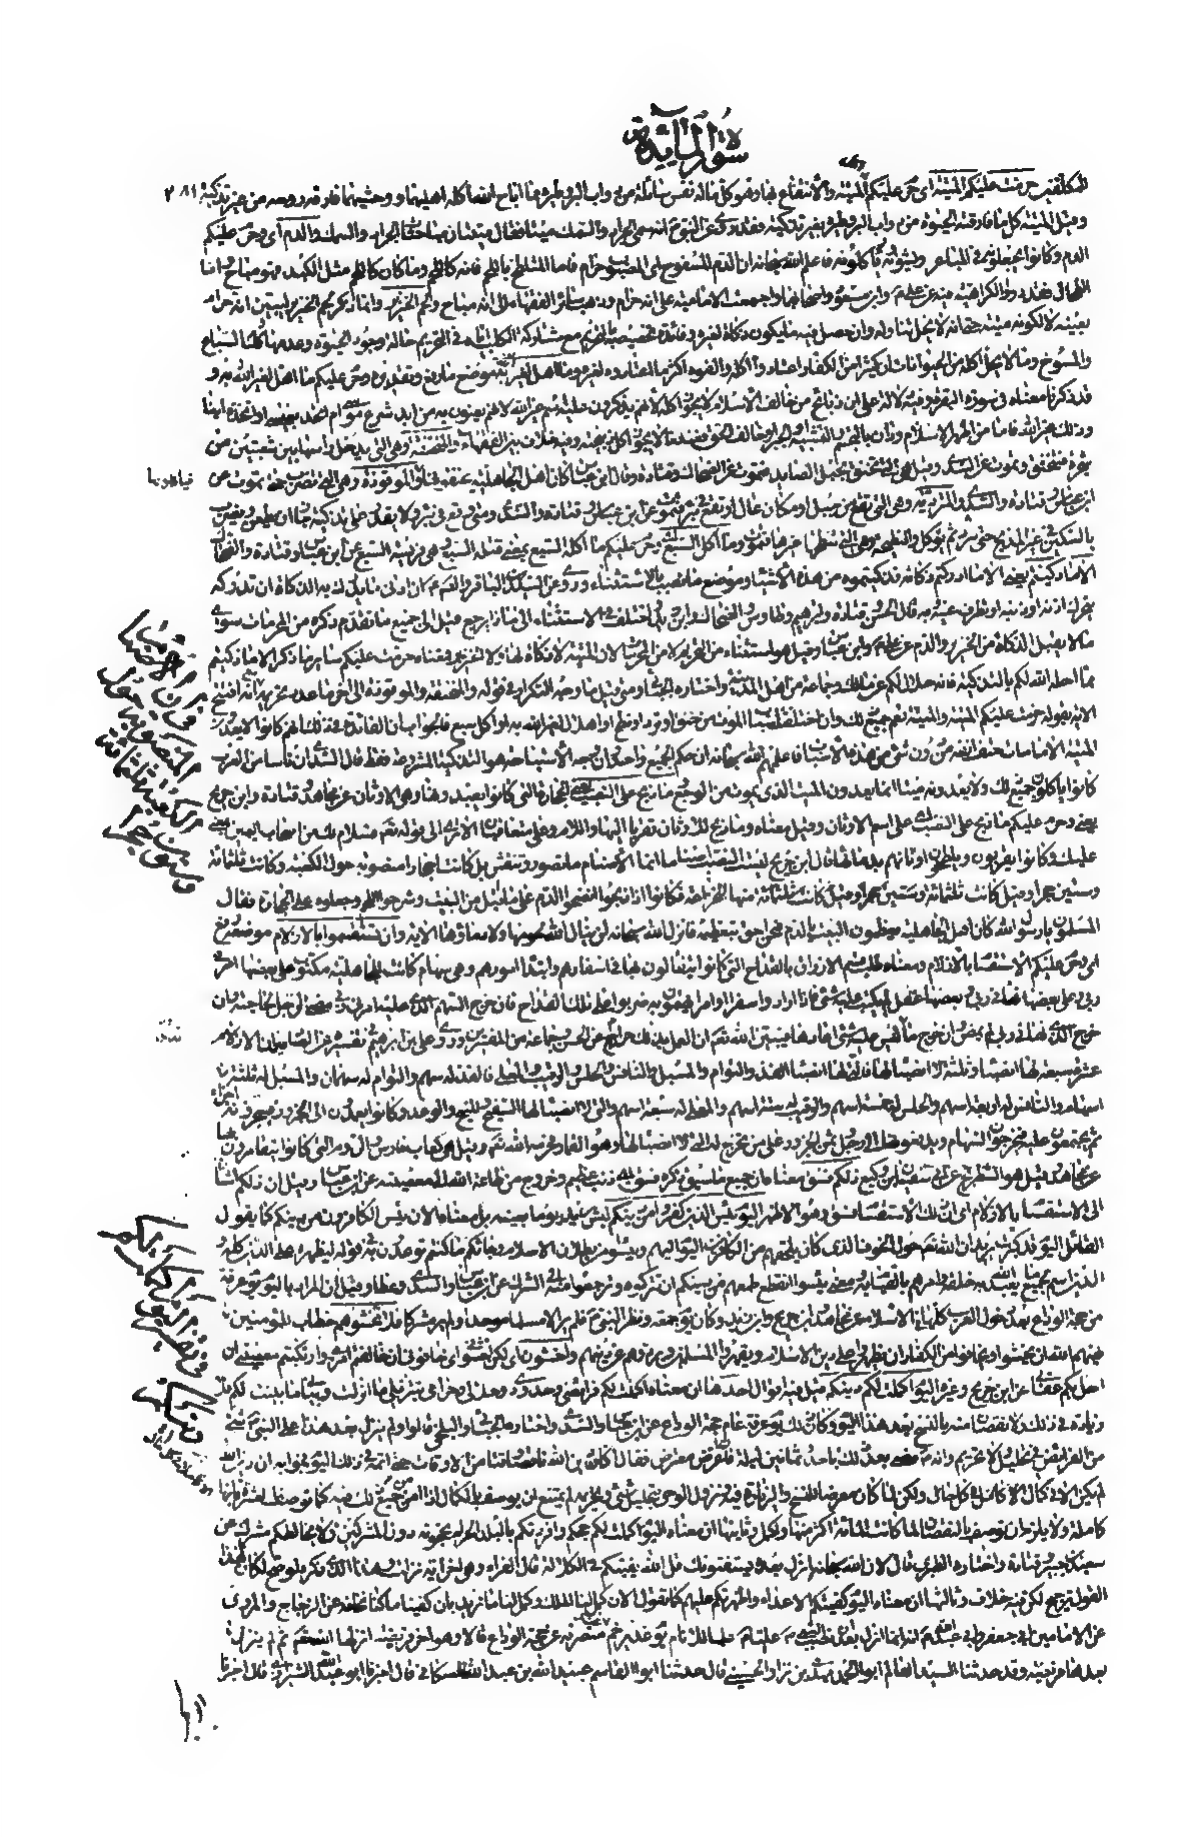 سورة المائدة
للمكلفين حرمت عليكم الميتة اى حرم عليكم اكل الميتة والانتفاع بها وهو كل ما له نفس سائلة من دواب البر وطيره مما اباح الله اكله اهليهما ووحشيهما فارقه روحه من غير تذكية ٢٨١
وقيل الميتة كل ما فارقته الحيوة من دواب البر وطيره بغير تذكية فقد روى عن النبى انه سمى الجراد والسمك ميتا فقال ميتتان مباحتان الجراد والسمك والدم اى وحرم عليكم
الدم وكانوا يجعلونه فى المباعر ويشوونه ويأكلونه فاعلم الله سبحانه ان الدم المسفوح اى المصبوب حرام فاما المتلطخ باللحم فانه كاللحم وما كان كاللحم مثل الكبد فهو مباح واما
الطحال فقد رووا الكراهية فيه عن على وابن مسعود واصحابهما واجمعت الامامية على انه حرام وذهب سائر الفقهاء الى انه مباح ولحم الخنزير وانما ذكر لحم الخنزير ليبين انه حرام
بعينه لا لكونه ميتة حتى انه لا يحل تناوله وان حصل فيه ما يكون ذكاة لغيره وفائدة تخصيصه بالتحريم مع مشاركة الكلب اياه فى التحريم حالة وجود الحيوة وعدمها وكذلك السباع
والمسوخ وما لا يحل اكله من الحيوانات ان كثيرا من الكفار اعتادوا اكله والفوه اكثر مما اعتادوه فى غيره وما اهل لغير الله به موضع ما رفع وتقديره وحرم عليكم ما اهل لغير الله به و
قد ذكرنا معناه فى سورة البقرة وفيه دلالة على ان ذبائح من خالف الاسلام لا يجوز اكله لانهم يذكرون عليه اسم غير الله لانهم يعنون به من ابد شرع موسى او اتحد بعيسى او اتخذه ابنا
وذلك غير الله فاما من اظهر الاسلام ودان بالتجسيم والتشبيه والجبر وخالف الحق فعندنا لا يجوز اكل ذبيحته وفيه خلاف بين الفقهاء والمنخنقة وهى التى يدخل راسها بين شعبتين من
شجرة فتنخنق وتموت عن السدى وقيل هى التى تخنق بحبل الصائد فتموت عن الضحاك وقتادة وقال ابن عباس كان اهل الجاهلية يخنقونها فيأكلونها والموقوذة وهى التى تضرب حتى تموت عن
ابن عباس وقتادة والسدى والمتردية وهى التى تقع من جبل او مكان عال او تقع فى بئر فتموت عن ابن عباس وقتادة والسدى ومتى وقع فى بئر ولا يقدر على تذكيته جاز ان يطعن ويضرب
بالسكين فى غير المذبح حتى يبرد ثم يؤكل والنطيحة وهى التى ينطحها غيرها فتموت وما اكل السبع اى وحرم عليكم ما اكله السبع بمعنى قتله السبع وهى فريسة السبع عن ابن عباس وقتادة والضحاك
الا ما ذكيتم يعنى الا ما ادركتم ذكاته فذكيتموه من هذه الاشياء وموضع ما نصب بالاستثناء وروى عن السيدين الباقر والصادق ان ادنى ما يدرك به الذكاة ان تدركه
يتحرك اذنه او ذنبه او تطرف عينه به قال الحسن وقتادة وابراهيم وطاوس والضحاك وابن زيد واختلف فى الاستثناء الى ماذا يرجع فقيل الى جميع ما تقدم ذكره من المحرمات سوى
ما لا يقبل الذكاة من الخنزير والدم عن على وابن عباس وقيل هو استثناء من التحريم لا من المحرمات لان الميتة لا ذكاة لها ولا الخنزير فمعناه حرمت عليكم سائر ما ذكر الا ما ذكيتم
مما احله الله لكم بالتذكية فانه حلال لكم عن مالك وجماعة من اهل المدينة واختاره الجبائى ومتى قيل ما وجه التكرار فى قوله والمنخنقة والموقوذة الى آخر ما عدد تحريمه مع انه افتتح
الاية بقوله حرمت عليكم الميتة والميتة تعم جميع ذلك وان اختلفت اسباب الموت من خنق او ترد او نطح او اهلال لغير الله به او اكل سبع فالجواب ان الفائدة فى ذلك انهم كانوا لا يعدون
الميتة الا ما مات حتف انفه من دون شىء من هذه الاسباب فاعلمهم الله سبحانه ان حكم الجميع واحد وان وجه الاستباحة هو التذكية المشروعة فقط قال السدى ان ناسا من العرب
كانوا يأكلون جميع ذلك ولا يعدونه ميتا انما يعدون الميت الذى يموت من الوجع وما ذبح على النصب يعنى الحجارة التى كانوا يعبدونها وهى الاوثان عن مجاهد وقتادة وابن جريج
يعنى وحرم عليكم ما ذبح على النصب اى على اسم الاوثان وقيل معناه وما ذبح للاوثان تقربا اليها واللام وعلى متعاقبان الا ترى الى قوله تعالى فسلام لك من اصحاب اليمين يعنى
عليك وكانوا يقربون ويلطخون اوثانهم بدمائها قال ابن جريج ليست النصب اصناما انما الاصنام ما تصور وتنقش بل كانت احجارا منصوبة حول الكعبة وكانت ثلثمائة
وستين حجرا وقيل كانت ثلثمائة منها لخزاعة فكانوا اذا ذبحوا نضحوا الدم على ما اقبل من البيت وشرحوا اللحم وجعلوه على الحجارة فقال
المسلمون يا رسول الله كان اهل الجاهلية يعظمون البيت بالدم فنحن احق بتعظيمه فانزل الله سبحانه لن ينال الله لحومها ولا دماؤها الاية وان تستقسموا بالازلام موضعه رفع
اى وحرم عليكم الاستقسام بالازلام ومعناه طلب قسم الارزاق بالقداح التى كانوا يتفألون بها فى اسفارهم وابتداء امورهم وهى سهام كانت للجاهلية مكتوب على بعضها امرنى
ربى وعلى بعضها نهانى ربى وبعضها غفل لم يكتب عليه شىء فاذا ارادوا سفرا او امرا يهتمون به ضربوا على تلك القداح فان خرج السهم الذى عليه امرنى ربى مضى الرجل لحاجته وان
خرج الذى عليه نهانى ربى لم يمض وان خرج ما ليس عليه شىء اعادوها فبين الله تعالى ان العمل بذلك حرام عن الحسن وجماعة من المفسرين وروى على بن ابراهيم فى تفسيره عن الصادقين ان الازلام
عشرة سبعة لها انصباء وثلثة لا انصباء لها فالتى لها انصباء الفذ والتوام والمسبل والنافس والحلس والرقيب والمعلى فالفذ له سهم والتوام له سهمان والمسبل له ثلثة
اسهم والنافس له اربعة اسهم والحلس له خمسة اسهم والرقيب له ستة اسهم والمعلى له سبعة اسهم والتى لا انصباء لها السفيح والمنيح والوغد وكانوا يعمدون الى الجزور فيجزونه اجزاء
ثم يجتمعون عليه فيخرجون السهام ويدفعونها الى رجل وثمن الجزور على من تخرج له التى لا انصباء لها وهو القمار فحرمه الله تعالى وقيل هى كعاب فارس والروم التى كانوا يتقامرون بها
عن مجاهد وقيل هو الشطرنج عن ابى سفيان بن وكيع ذلكم فسق معناه ان جميع ما سبق ذكره فسق اى ذنب عظيم وخروج من طاعة الله الى معصيته عن ابن عباس وقيل ان ذلكم اشارة
الى الاستقسام بالازلام اى ان ذلك الاستقسام فسق وهو الاظهر اليوم يئس الذين كفروا من دينكم ليس يريد يوما بعينه بل معناه الان يئس الكافرون من دينكم كما يقول
القائل اليوم قد كبرت يريد ان الله تعالى حول الخوف الذى كان يلحقهم من الكافرين اليوم اليهم ويئسوا من بطلان الاسلام وجاءكم ما كنتم توعدون به فى قوله ليظهره على الدين كله و
الدين اسم لجميع ما تعبد الله به خلقه وامرهم بالقيام به ومعنى يئسوا انقطع طمعهم من دينكم ان تتركوه وترجعوا منه الى الشرك عن ابن عباس والسدى وعطاء وقيل ان المراد باليوم يوم عرفة
من حجة الوداع بعد دخول العرب كلها فى الاسلام عن مجاهد وابن جريج وابن زيد وكان يوم جمعة ونظر النبى فلم ير الا مسلما موحدا ولم ير مشركا فلا تخشوهم خطاب للمؤمنين
نهاهم الله ان يخشوا ويخافوا من الكفار ان يظهروا على دين الاسلام ويقهروا المسلمين ويردوهم عن دينهم واخشون اى ولكن اخشونى اى خافونى ان خالفتم امرى وارتكبتم معصيتى ان
احل بكم عقابى عن ابن جريج وغيره اليوم اكملت لكم دينكم قيل فيه اقوال احدها ان معناه اكملت لكم فرائضى وحدودى وحلالى وحرامى بتنزيلى ما انزلت وبيانى ما بينت لكم فلا
زيادة فى ذلك ولا نقصان منه بالنسخ بعد هذا اليوم وكان ذلك يوم عرفة عام حجة الوداع عن ابن عباس والسدى واختاره الجبائى والبلخى قالوا ولم ينزل بعد هذا على النبى شىء
من الفرائض فى تحليل ولا تحريم وانه مضى بعد ذلك باحدى وثمانين ليلة فان اعترض معترض فقال اكان دين الله ناقصا وقتا من الاوقات حتى اتمه فى ذلك اليوم فجوابه ان دين الله
لم يكن الا فى كمال الا كامل فى كل حال ولكن لما كان معرضا للنسخ والزيادة فيه ونزول الوحى بتحليل شىء او تحريمه لم يمتنع ان يوصف بالكمال اذا امن من جميع ذلك فيه كما توصف العشرة بانها
كاملة ولا يلزم ان توصف بالنقصان لما كانت المائة اكثر منها واكمل وثانيها ان معناه اليوم اكملت لكم حجكم وافردتكم بالبلد الحرام تحجونه دون المشركين ولا يخالطكم مشرك عن
سعيد بن جبير وقتادة واختاره الطبرى قال لان الله سبحانه انزل بعده يستفتونك قل الله يفتيكم فى الكلالة قال الفراء وهى اخر اية نزلت وهذا الذى ذكره لو صح لكان لهذا
القول ترجيح لكن فيه خلاف وثالثها ان معناه اليوم كفيتكم الاعداء واظهرتكم عليهم كما تقول الان كمل لنا الملك وكمل لنا ما نريد بان كفينا ما كنا نخافه عن الزجاج والمروى
عن الامامين ابى جعفر وابى عبد الله انه انما انزل بعد ان نصب النبى عليا علما للانام يوم غدير خم منصرفه عن حجة الوداع قالا وهو اخر فريضة انزلها الله تعالى ثم لم ينزل
بعدها فريضة وقد حدثنا السيد العالم ابو الحمد مهدى بن نزار الحسينى قال حدثنا ابو القاسم عبيد الله بن عبد الله الحسكانى قال اخبرنا ابو عبد الله الشيرازى قال اخبرنا